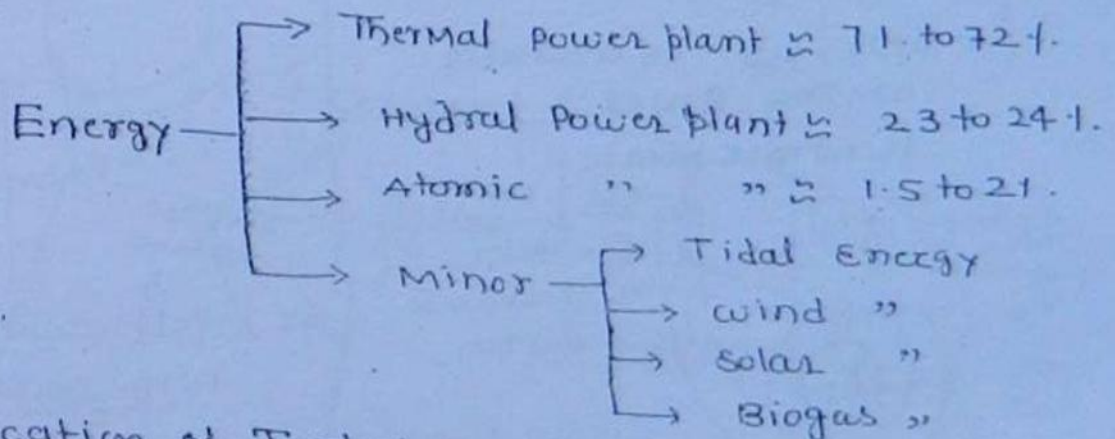 Thermal Power plant ≈ 71. to 72 %.
Energy
Hydral Power plant ≈ 23 to 24 %.
Atomic " " ≈ 1.5 to 2 %.
Minor
Tidal Energy
wind "
Solar "
Biogas "